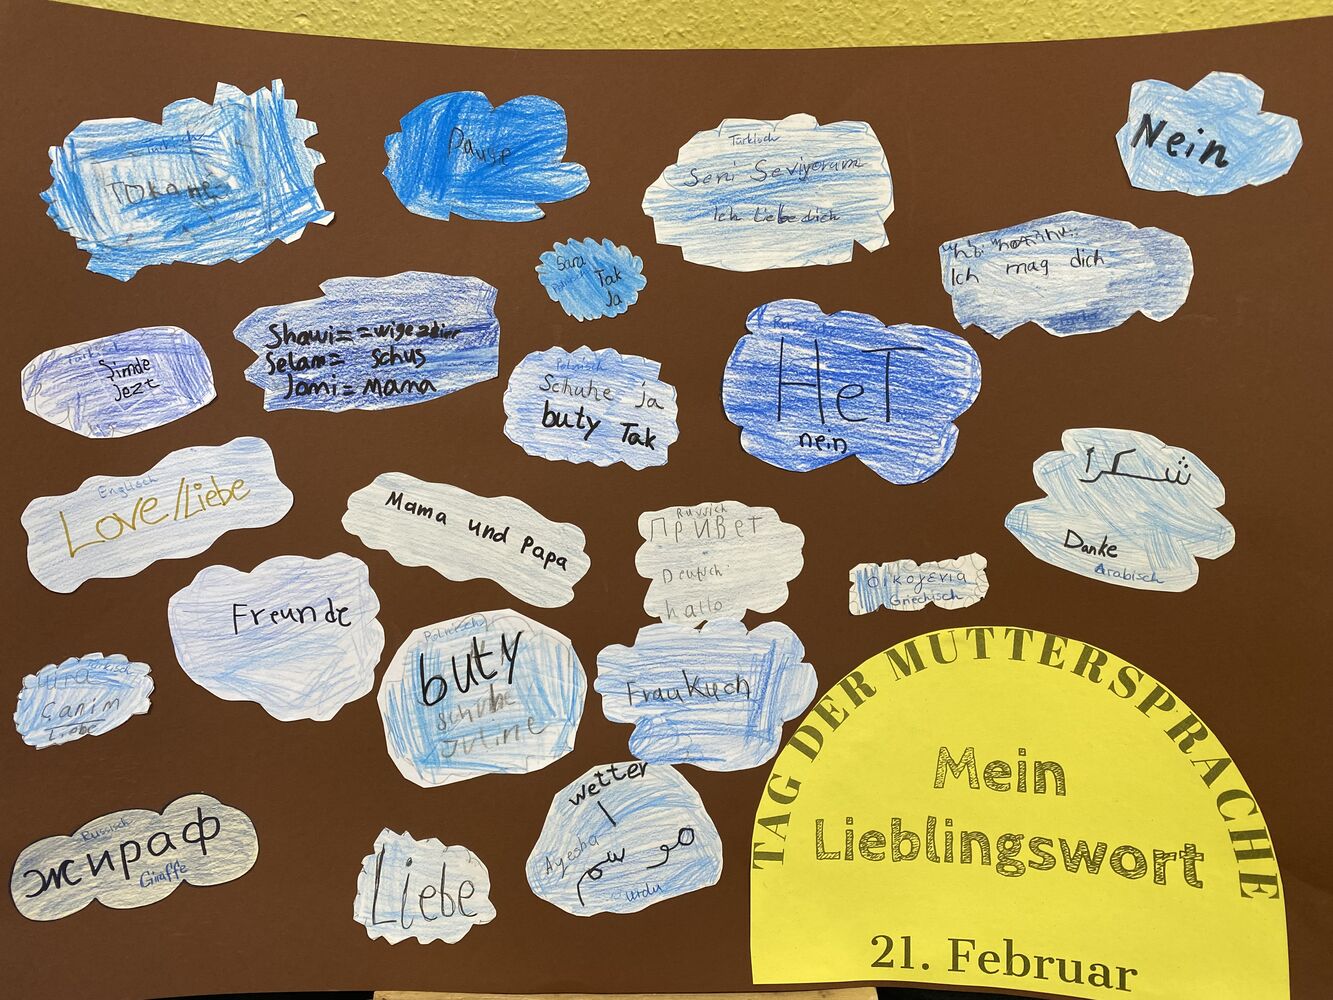 Türkisch
Pause
Türkisch
Seni Seviyorum
Ich Liebe dich
Nein
Sara
Tak
Ja
Ich mag dich
Shawi= =wige zdier
Selam= schus
Jami= Mama
Türkisch
Şimde
Jezt
Polnisch
Schuhe ja
buty Tak
Russisch
НеТ
nein
شكرا
Danke
Arabisch
Englisch
Love/Liebe
Mama und Papa
Russich
Привет
Deutsch
hallo
Οικογενια
Griechisch
Freunde
Polnisch
buty
schuhe
Juline
Frau Kuch
Canim
Liebe
Russisch
жираф
Giraffe
Liebe
wetter
Ayesha
موسم
urdu
TAG DER MUTTERSPRACHE
Mein
Lieblingswort
21. Februar